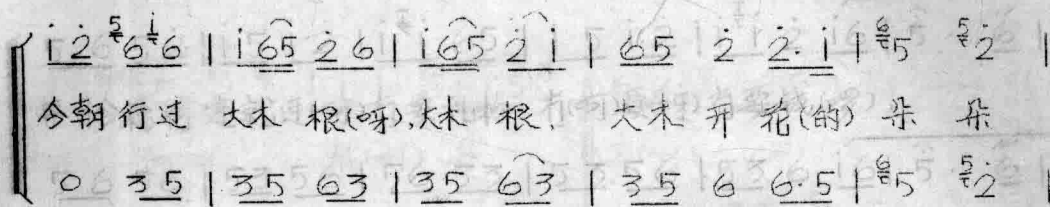 i̇ 2̇ 5 6 i̇ 6 | i̇ 6 5 2̇ 6 | i̇ 6 5 2̇ i̇ | 6 5 2̇ 2̇· i̇ | 6 5 5 2̇ |
今朝 行过 大木 根(呀),大木 根, 大木 开 花(的) 朵 朵
0 3 5 | 3 5 6 3 | 3 5 6 3 | 3 5 6 6·5 | 6 5 5 2̇ |